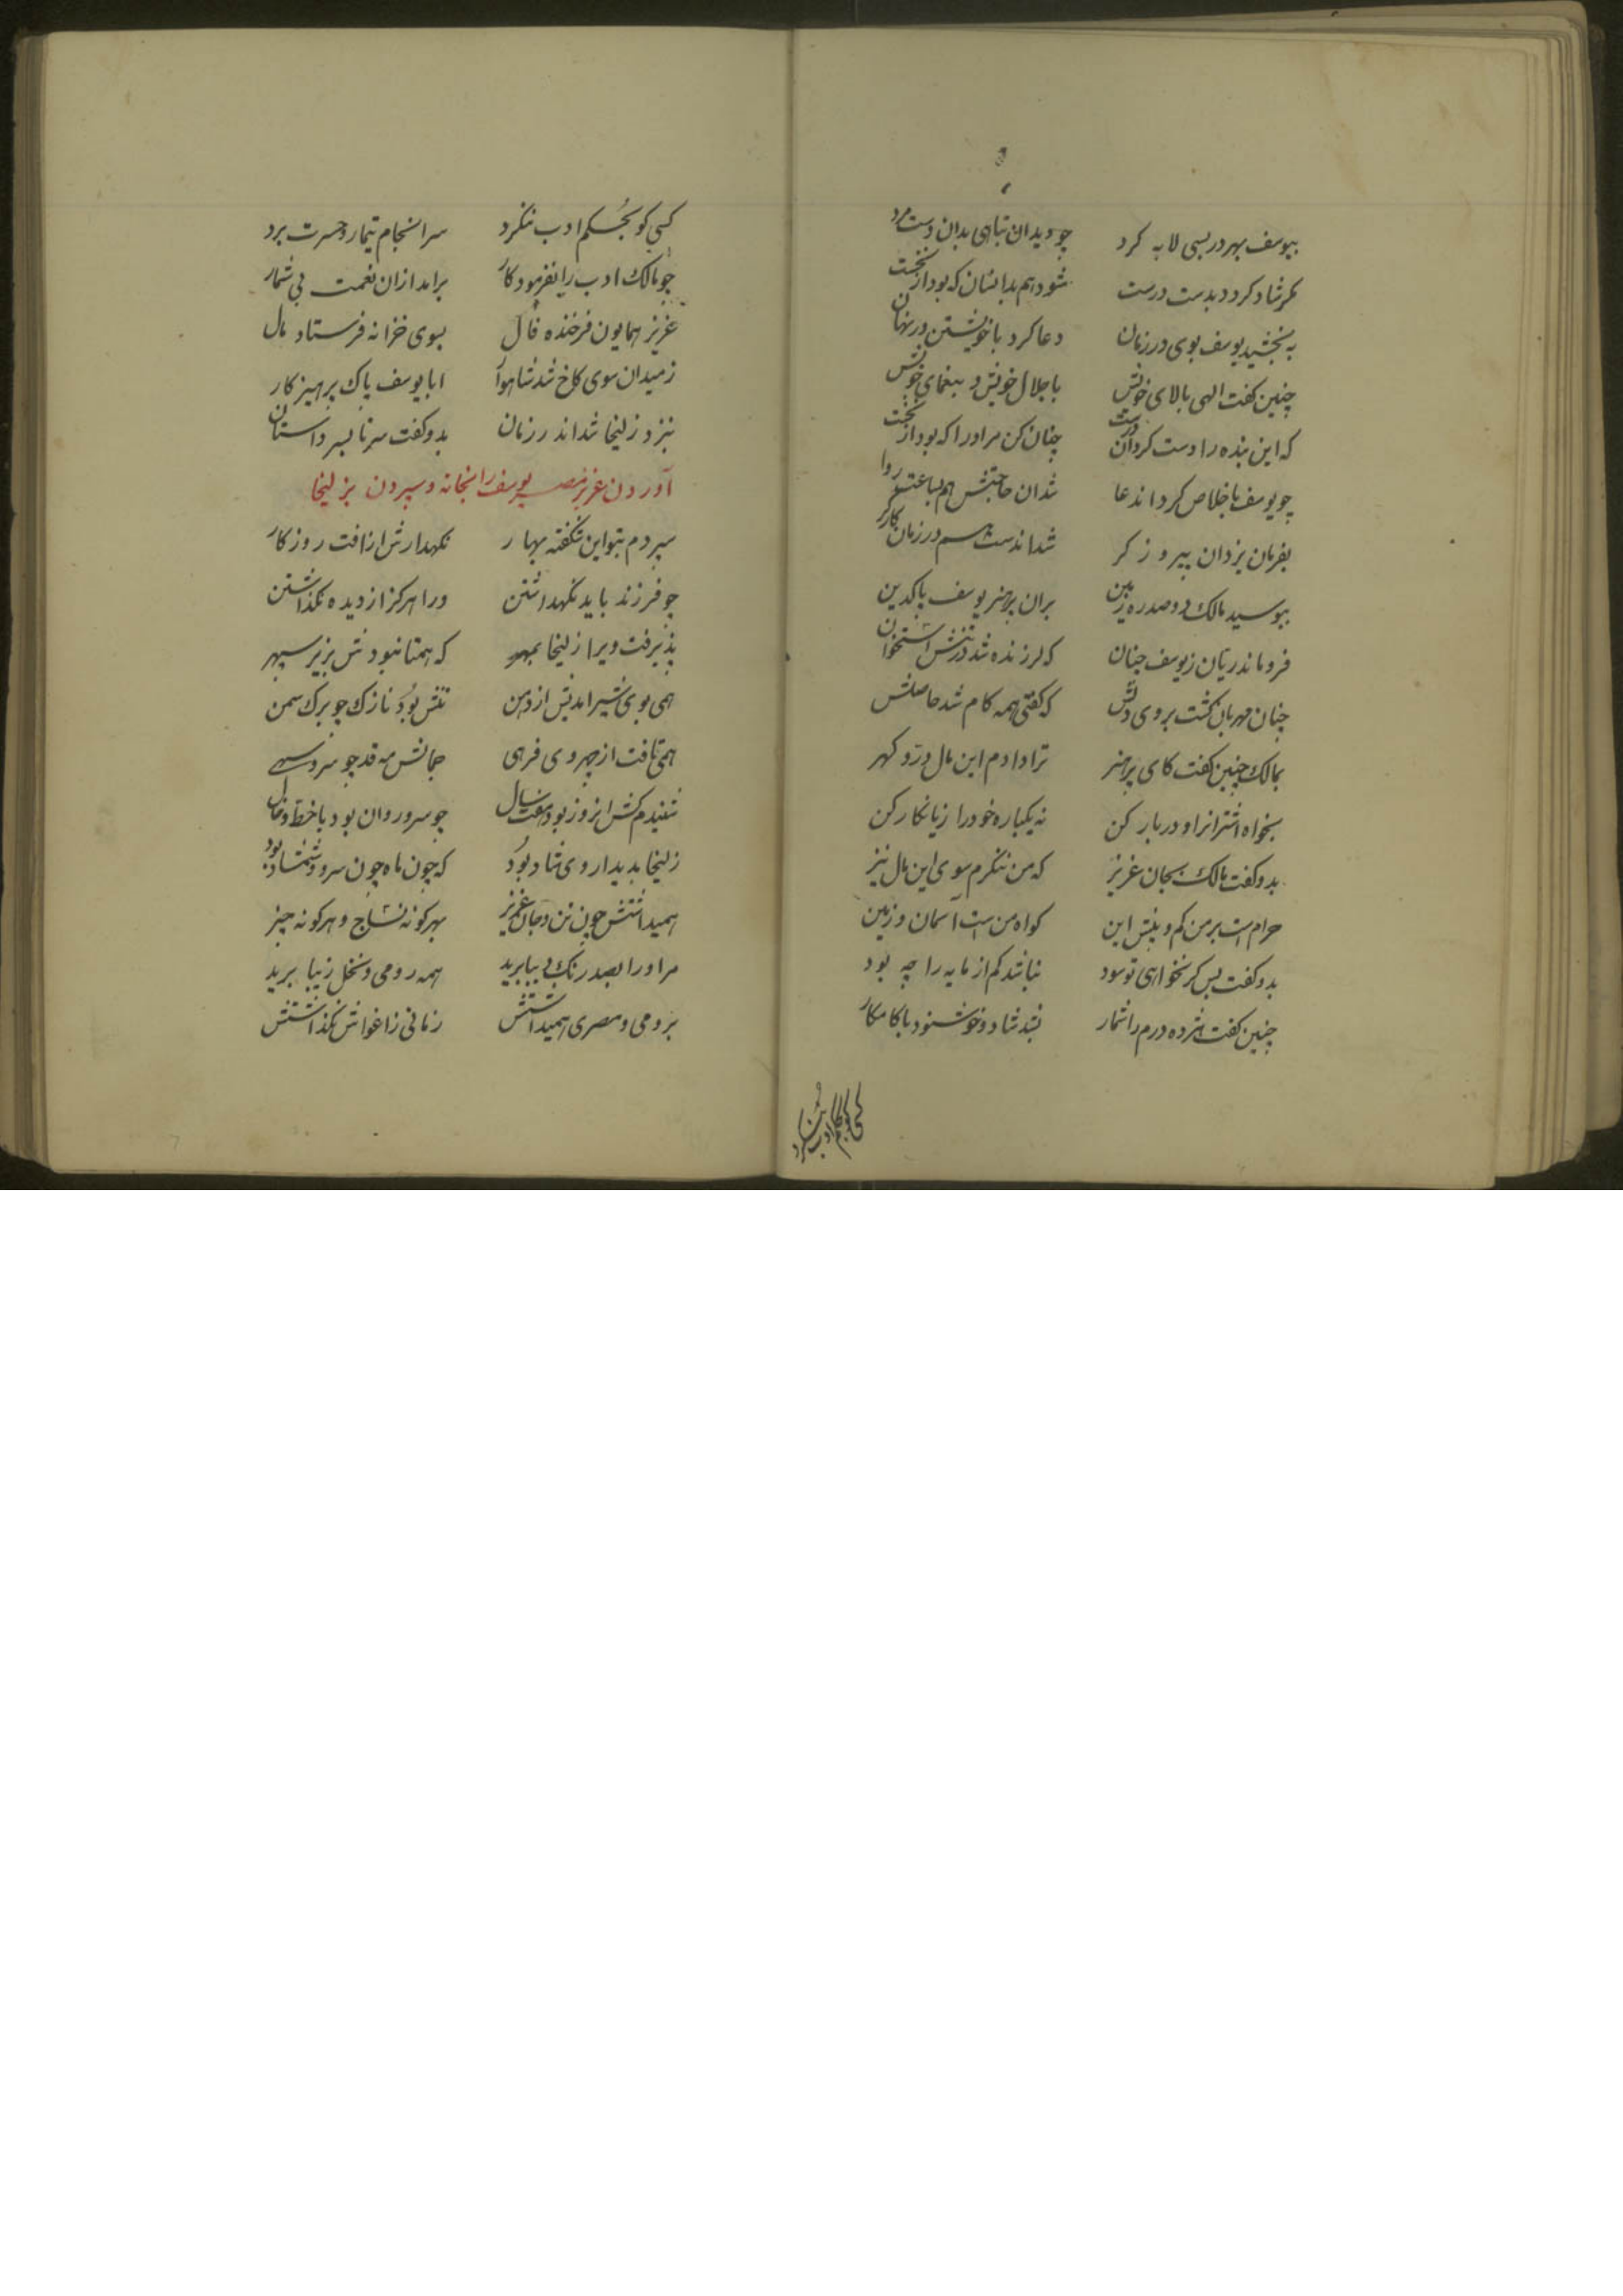 بیوسف بهر در بسی لابه کرد چو دید ان تباهی بدان دست مرد
مکر شاد کردد بدست درست شود هم بدانسان که بود از نخست
به بخشید یوسف بوی در زمان دعا کرد با خویشتن در نهان
چنین کفت الهی بالای خویش باجلال خویش و بنعمای خویش
که این بنده را دست کردان درست چنان کن مر او را که بود از نخست
چو یوسف باخلاص کرد اند عا شد ان حاجتش هم بساعت روا
بفرمان یزدان پیروز کر شد اندست در زمان کارکر
ببوسید مالک دو صد ره زمین بران پرهنر یوسف پاکدین
فرو ماند ریان ز یوسف چنان که لرزنده شد در تنش استخوان
چنان مهربان کشت بروی دلش که کفتی همه کام شد حاصلش
بمالک چنین کفت کای پرهنر ترا دادم این مال و در و کهر
بخواه اشترانرا و دربار کن نه یکباره خود را زیانکار کن
بدو کفت مالک بجان عزیز که من ننکرم سوی این مال نیز
حرام است بر من کم و بیش این کواه من است آسمان و زمین
بدو کفت پس کر نخواهی تو سود نباشد کم از مایه را چه بود
چنین کفت هژده درم را شمار بشد شاد و خوشنود با کامکار
کسی کو بحکم ادب ننکرد
کسی کو بحکم ادب ننکرد سرانجام تیمار و حسرت برد
چو مالک ادب را نفرمود کار برامد ازان نعمت بی شمار
عزیز همایون فرخنده فال بسوی خزانه فرستاد مال
ز میدان سوی کاخ شد شاهوار ابا یوسف پاک پرهیز کار
بنزد زلیخا شد اندر زمان بدو کفت سر تا بسر داستان
آوردن عزیز مصر یوسف را بخانه و سپردن بزلیخا
سپردم بتو این شکفته بهار نکهدارش از افت روزکار
چو فرزند باید نکهداشتن ورا هرکز از دیده نکذاشتن
پذیرفت ویرا زلیخا بمهر که همتا نبودش بزیر سپهر
همی بوی شیر امدیش از دهن تنش بود نازک چو برک سمن
همی تافت از چهر وی فرهی جمالش مه قد چو سرو سهی
شنیدم کش انروز بود هفت سال چو سرو روان بود با خط و خال
زلیخا بدیدار وی شاد بود که چون ماه چون سرو و شمشاد بود
همیداشتش چون تن و جان عزیز بهر کونه نساج و هر کونه چیز
مر او را بصد رنک دیبا برید همه رومی و نخل زیبا برید
برومی و مصری همیداشتش زمانی ز اغواش نکذاشتش